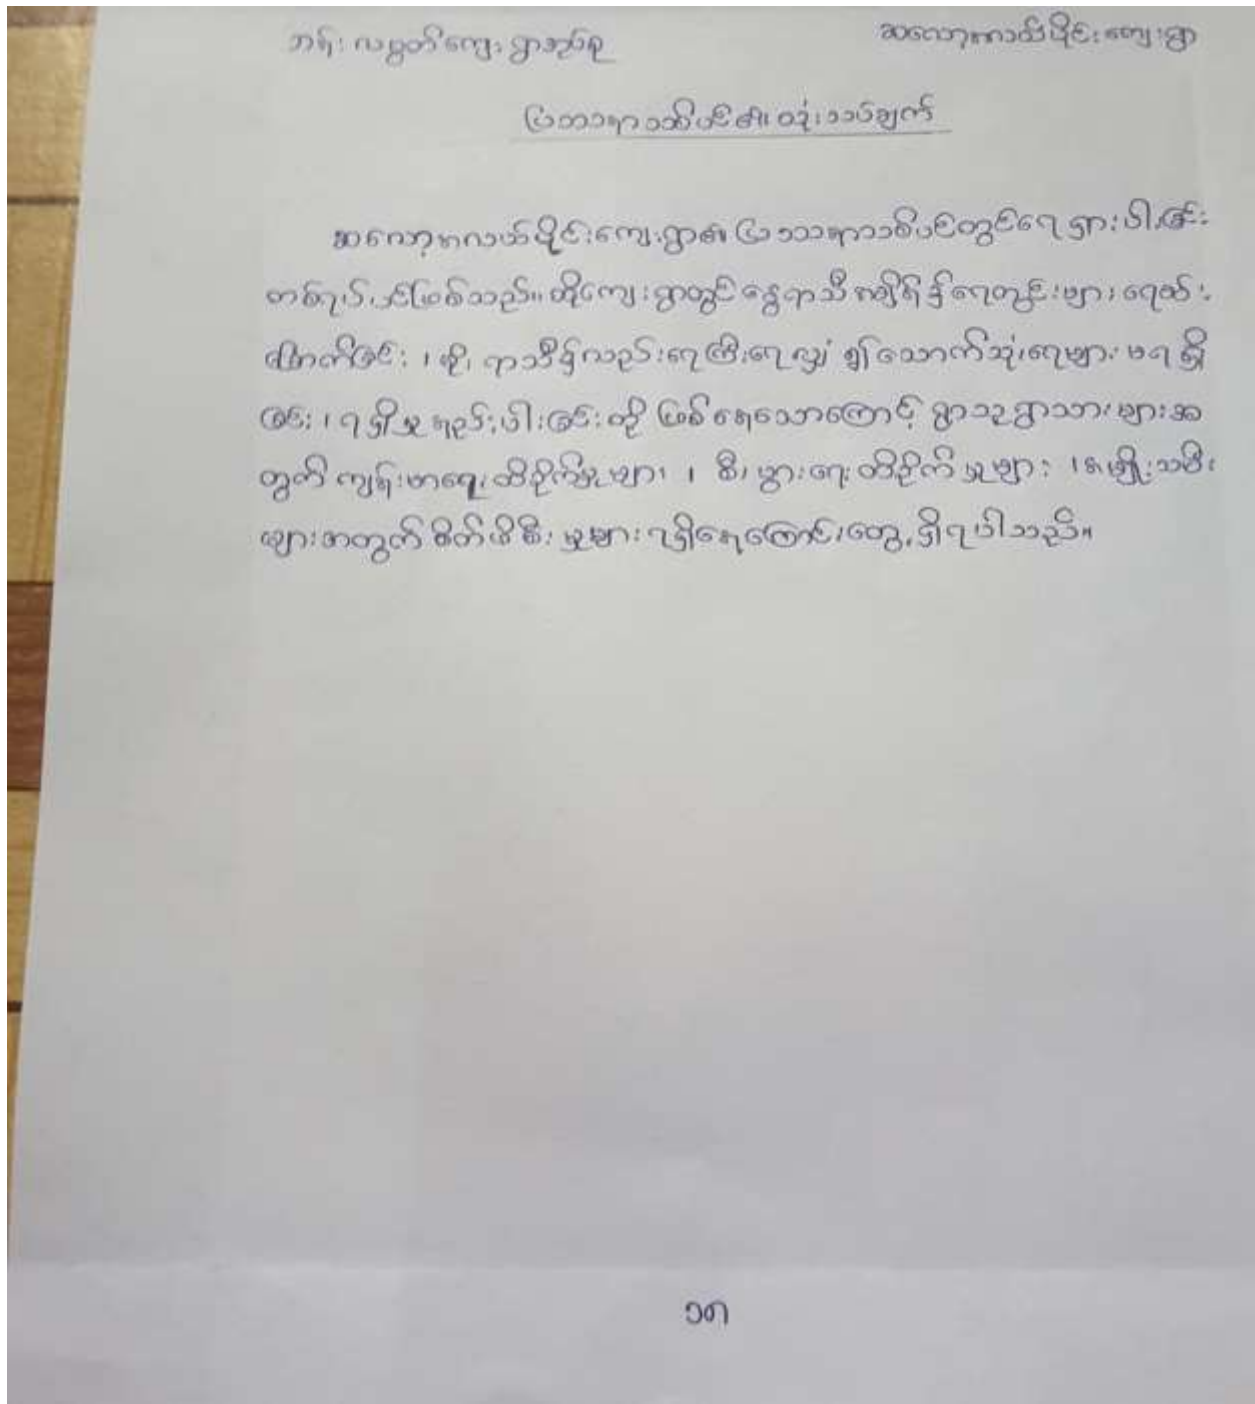 ဘန်းလမွတ်ကျေးရွာအုပ်စု ဆလော့မလယ်ပိုင်းကျေးရွာ
ပြဿနာသစ်ပင်၏သုံးသပ်ချက်
ဆလော့မလယ်ပိုင်းကျေးရွာ၏ ပြဿနာသစ်ပင်တွင်ရေရှားပါးခြင်း
တစ်ရပ်ပင်ဖြစ်သည်။ ထိုကျေးရွာတွင် နွေရာသီအချိန်၌ရေတွင်းများ ရေခမ်း
ခြောက်ခြင်း ၊ မိုးရာသီ၌လည်းရေကြီးရေလျှံ ၍သောက်သုံးရေများ မရရှိ
ခြင်း ၊ ရရှိမှုနည်းပါးခြင်းတို့ ဖြစ်နေသောကြောင့် ရွာသူရွာသားများအ
တွက် ကျန်းမာရေးထိခိုက်မှုများ ၊ စီးပွားရေးထိခိုက်မှုများ ၊အမျိုးသမီး
များအတွက် စိတ်ဖိစီးမှုများ ရရှိနေကြောင်းတွေ့ရှိရပါသည်။
၁၈